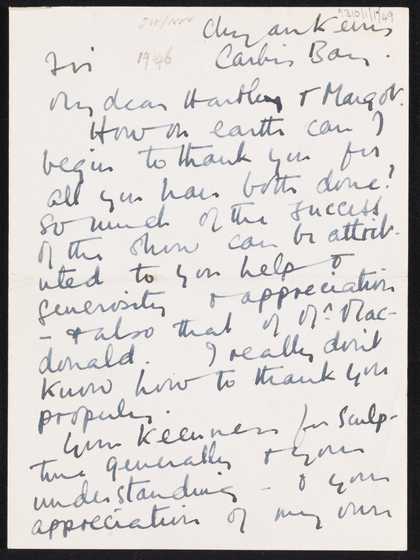 Oct/Nov
1946
9210/1/1/49
Chy an Kerris
Fri Carbis Bay.
My dear Hartley & Margot.
How on earth can I
begin to thank you for
all you have both done?
So much of the success
of the show can be attrib-
uted to you help &
generosity & appreciation
- & also that of Mr Mac-
donald. I really don't
know how to thank you
properly.
Your keenness for sculp-
ture generally & your
understanding - & your
appreciation of my own